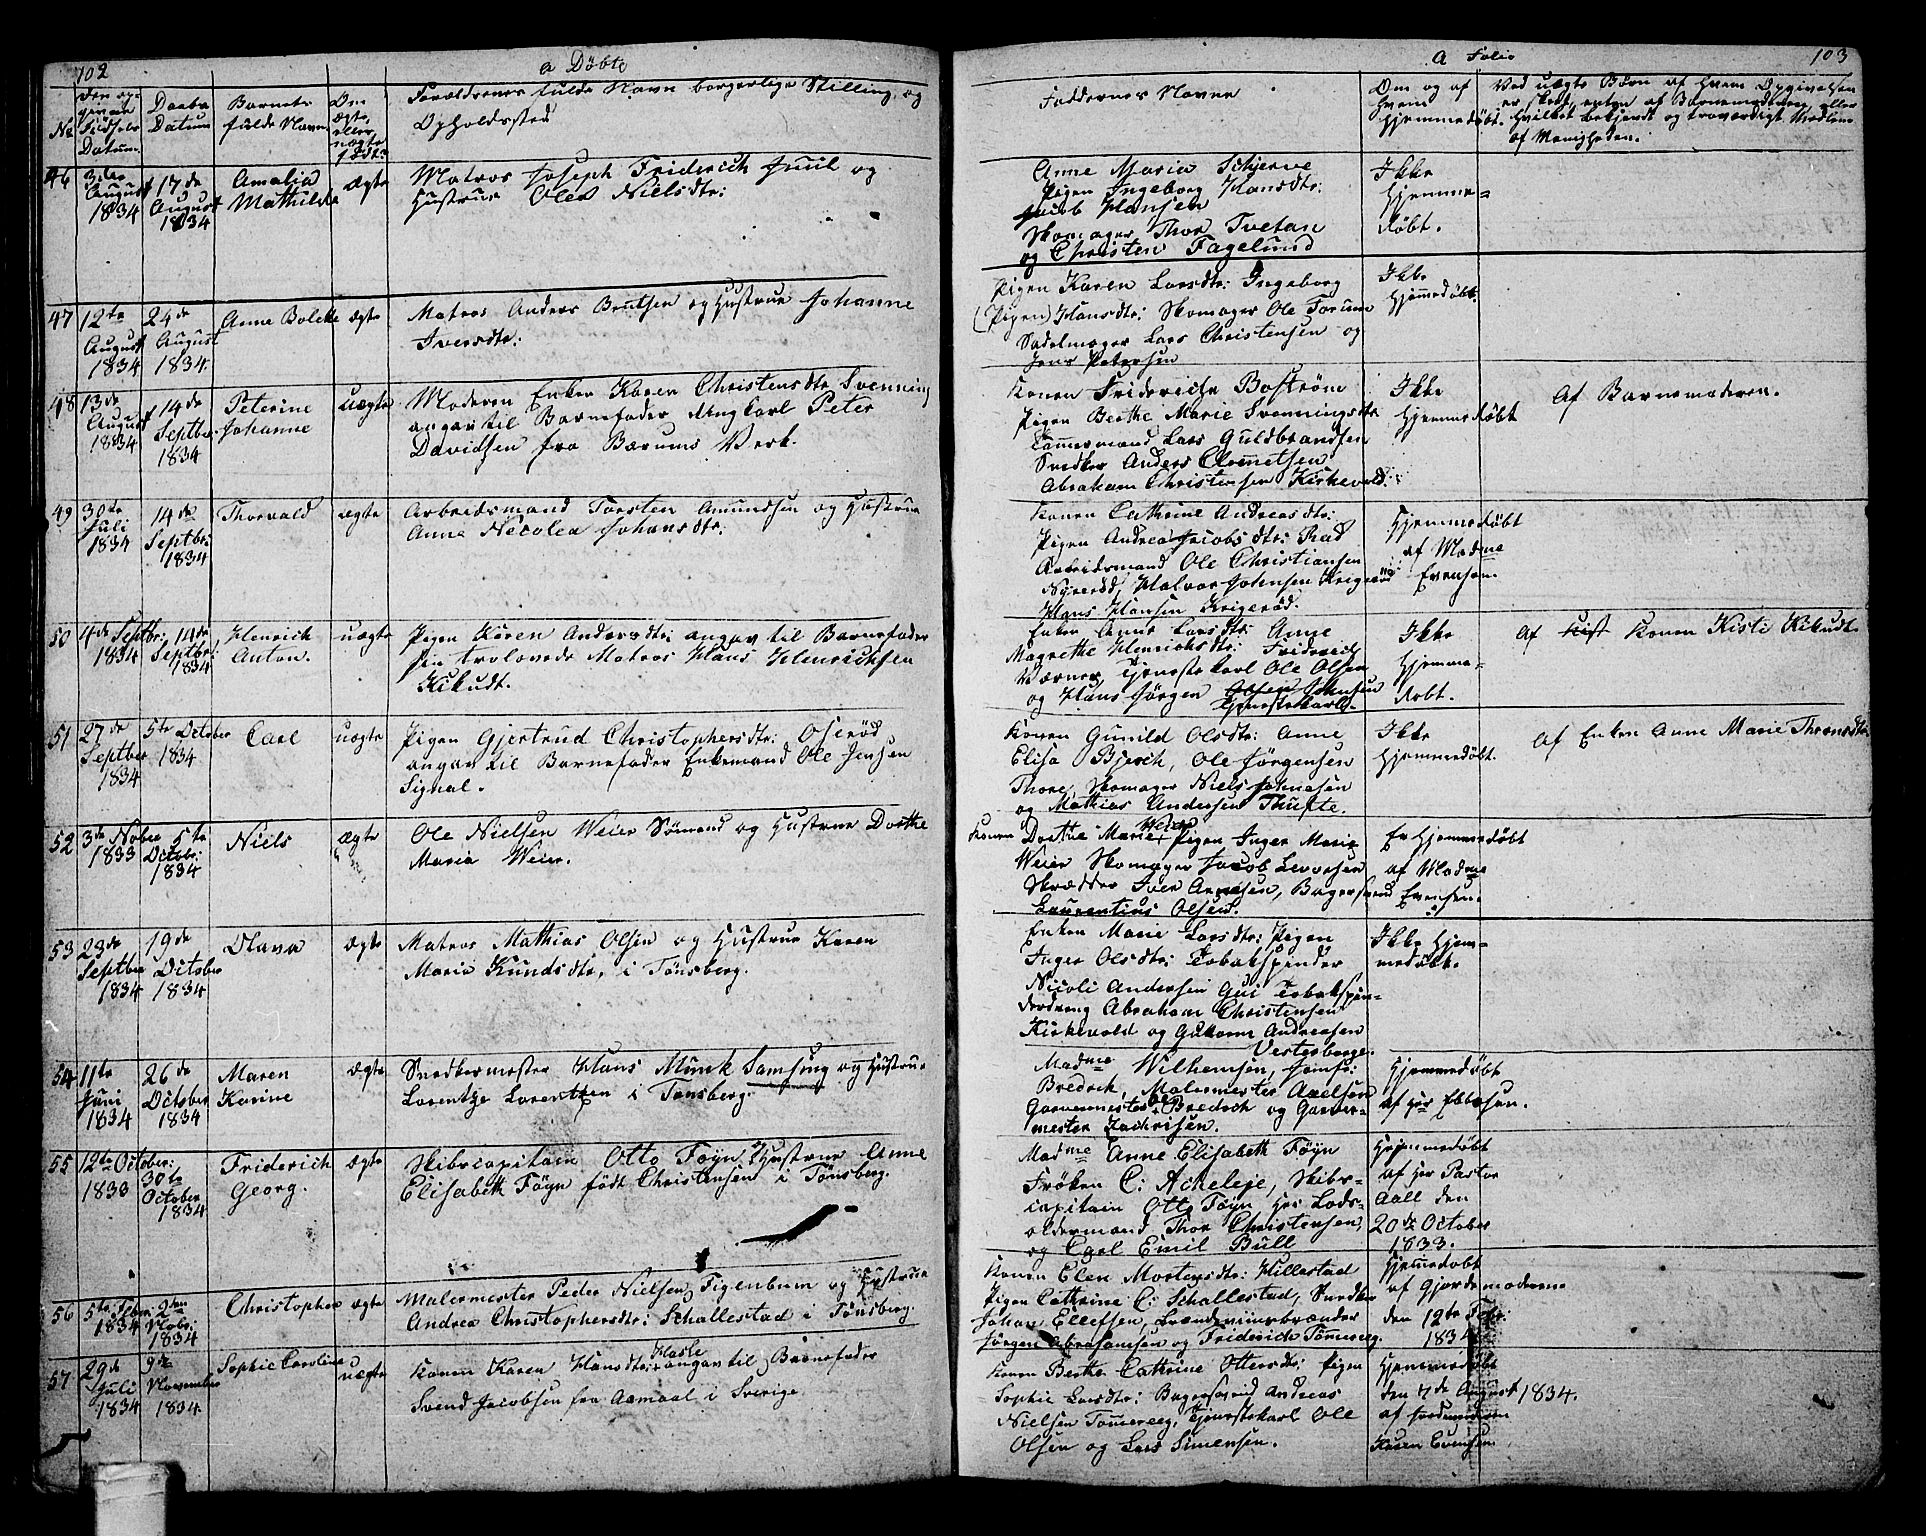 102
a Døbte
No
Den op-
givne
Fødsels
Datum.
Daabs
Datum
Barnets
fulde Navn
Om
ægte
eller
uægte
født
Forældrenes fulde Navn borgerlige Stilling og
Opholdssted
46
3die
August
1834
17de
August
1834
Amalia
Mathilde
ægte
Matros Joseph Friderich Juul og
Hustrue Olea Nielsdtr:
47
12te
August
1834
24de
August
1834.
Anne Bolette
ægte
Matros Anders Bentsen og Hustrue Johanne
Iversdtr:
48
13de
August
1834
14de
Septbr.
1834
Peterine
Johanne
uægte
Moderen Enken Karen Christensdtr Svenning
angav til Barnefader Ungkarl Peter
Davidsen fra Bærums Verk.
49
30te
Juli
1834
14de
Septbr:
1834
Thorvald
ægte
Arbeidsmand Torsten Amundsen og Hustrue
Anne Nicolea Johansdtr.
50
4de Septbr:
1834
14de
Septbr:
1834
Henrich
Anton.
uægte
Pigen Karen Andersdtr: angav til Barnefader
sin trolovede Matros Hans Henrichsen
Kikudt.
51
27de
Septber
1834
5te October
1834
Carl
uægte
Pigen Gjertrud Christophersdtr: Oserød
angav til Barnefader Enkemand Ole Jensen
Signal.
52
3de Nober
1833
5te
Octobr:
1834
Niels
ægte
Ole Nielsen Weier Sømand og Hustrue Dorthe
Maria Weier.
53
23de
Septber
1834
19de
October
1834
Olava
ægte
Matros Mathias Olsen og Hustrue Karen
Maria Knudsdtr, i Tønsberg.
54
11te
Juni
1834
26de
October
1834
Maren
Karine
ægte
Snedkermester Hans Munk Samsing og Hustrue
Lorentze Lorentzen i Tønsberg.
55
12te October:
1833
30te
October
1834
Friderich
Georg.
ægte
Skibscapitain Otto Føyn, Hustrue Anne
Elisabeth Føyn født Christensen i Tønsberg.
56
5te Febr:
1834
2den
Nobr:
1834
Christopher
ægte
Malermester Peder Nielsen Figenbum og Hustrue
Andrea Christophersdtr: Schallestad i Tønsberg.
57
29de
Juli
1834
9de
November
1834.
Sophie Caroline
uægte
Konen Karen Hansdtr: Hasle angav til Barnefader
Svend Jacobsen fra Aamaal i Sverige
a Folio
103
Faddernes Navne
Om og af
Hvem
hjemmedøbt.
Ved uægte Børn af Hvem Opgivelsen
er skeet, enten af Barnemoderen, eller
hvilket bekjendt og troværdigt Medlem
af Menigheden.
Anne Maria Schjerve
Pigen Ingeborg Hansdtr:
Jacob Hansen
Skomager Thor Tvetan
og Christen Fagelund
Ikke
hjemme-
døbt.
Pigen Karen Larsdtr: Ingeborg
(Pigen) Hansdtr: Skomager Ole Forum
Sadelmager Lars Christensen og
Jens Petersen
Ikke
hjemedøbt.
Konen Frideriche Boströme
Pigen Berthe Marie Svenningsdtr
Tømmermand Lars Guldbrandsen
Snedker Anders Clemetsen
Abraham Christensen Kirkevold.
Ikke
hjemmedøbt
Af Barnemoderen.
Konen Cathrine Andreasdtr:
Pigen Andrea Jacobsdtr: Rad
Arbeidsmand Ole Christiansen
Nyerød, Halvor Johnsen Krigerød
Hans Hansen Krigerød.
Hjemmedøbt
af Madme
Evensen.
Enken Anne Larsdtr: Anne
Magrethe Henrichsdtr: Friderich
Værner, Tjenestekarl Ole Olsen
og Hans Jørgen Olsen Johnsen
Tjenestekarle.
Ikke
hjemme-
døbt.
Af Kist Konen Kisti Kikudt.
Konen Gunild Olsdtr: Anne
Elisa Bjerck, Ole Jørgensen
Thore, Skomager Niels Johnasen
og Mathias Andersen Thufte.
Ikke
hjemmedøbt.
Af Enken Anne Marie Thronsdtr
Konen Dorthe Marie Weier, Pigen Inger Marie
Weier Skomager Jacob Levorsen
Skrædder Iver Arnesen, Bagersvend
Laurentius Olsen.
Er Hjemmedøbt
af Madme
Evensen.
Enken Marie Larsdtr: Pigen
Inger Olsdtr: Tobakspinder
Nicoli Andersen Gui Tobakspin-
derdreng Abraham Christensen
Kirkevold og Guttorm Andreasen
Vesterberge.
Ikke Hjem-
medøbt.
Madme Wilhemsen, Jomfr:
Bredoch, Malermester Axelsen
Garvermester Ole Bredoch og Garver-
mester Zachrisen.
Hjemmedøbt
af Hr Ebbesen.
Madme Anne Elisabeth Føyn
Frøken C: Acheleje, Skibs-
capitain Otto Føyn, Hr: Lods-
oldermand Thor Christensen,
og Carl Emil Bull
Hjemmedøbt
af Hr Pastor
Aall den
20de October
1833.
Konen Elen Mortensdtr: Hillestad
Pigen Cathrine C: Schallestad, Snedker
Johan Ellefsen, Brændeviinsbrænder
Jørgen Abrahamsen og Friderich Tømmereg.
Hjemedøbt
af Gjordemoderen
den 12te Febr:
1834
Konen Berthe Cathrine Ottersdtr: Pigen
Sophie Larsdtr: Bagersvend Andreas
Nielsen Tømmereeg, Tjenestekarl Ole
Olsen og Lars Simensen.
Hjemmedøbt
den 4de August 1834.
af Jordemoderen
Karen Evensen